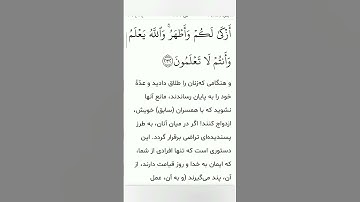 أَزْكَىٰ لَكُمْ وَأَطْهَرُ ۗ وَاللَّهُ يَعْلَمُ
وَأَنتُمْ لَا تَعْلَمُونَ ﴿٢٣٢﴾
و هنگامی که‌زنان را طلاق دادید و عدّهٔ
خود را به پایان رساندند، مانع آنها
نشوید که با همسران (سابق) خویش،
ازدواج کنند! اگر در میان آنان، به طرز
پسندیده‌ای تراضی برقرار گردد. این
دستوری است که تنها افرادی از شما،
که ایمان به خدا و روز قیامت دارند، از
آن، پند می‌گیرند (و به آن، عمل